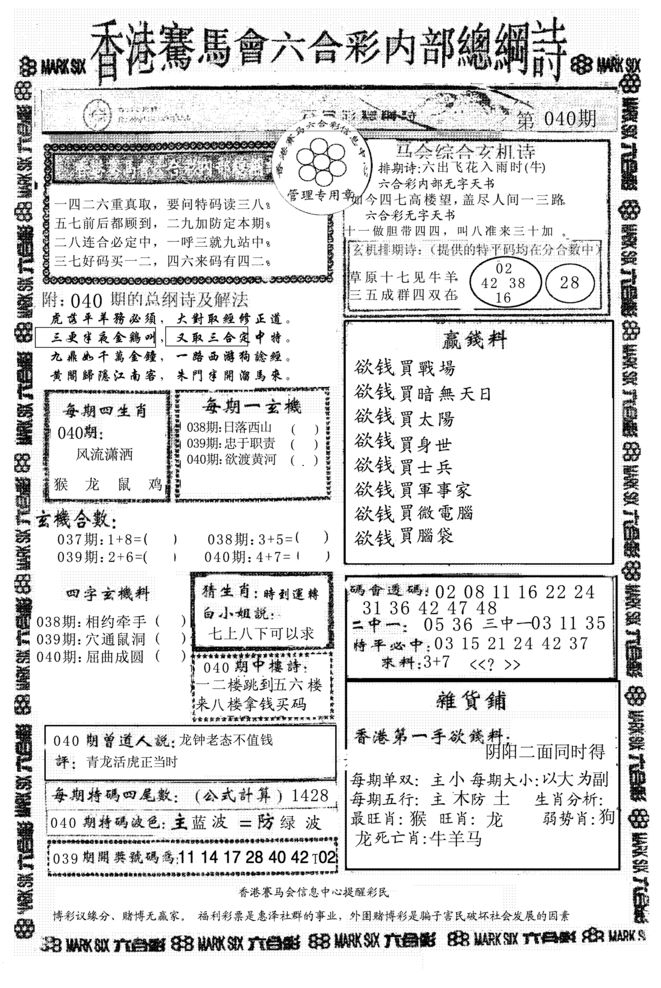 香港騫馬會六合彩内部總綱詩
MARK SIX
MARK SIX
第 040期
香港赛马六合彩信息中心
管理专用章
一四二六重真取，要问特码读三八。
五七前后都顾到，二九加防定本期。
二八连合必定中，一呼三就九站中。
三七好码买一二，四六来码有四二。
马会综合玄机诗
排期诗:六出飞花入雨时(牛)
六合彩内部无字天书
如今四七高楼望,盖尽人间一三路
六合彩无字天书
十一做胆带四四，叫八准来三十加 。
玄机排期诗:（提供的特平码均在分合数中)
草原十七见牛羊
三五成群四双在
02
42 38
16
28
附: 040 期的总纲诗及解法
虎落平羊務必須，大對取經修正道。
三更半夜金鷄叫，又取三合定中特。
九鼎如千萬金鐘，一路西游狗諗經。
黄閣歸隱江南客，朱門半開溜馬來。
每期四生肖
040期：
风流潇洒
猴 龙 鼠 鸡
每期一玄機
038期:日落西山 （ ）
039期:忠于职责 （ ）
040期:欲渡黄河 （ ）
赢錢料
欲钱買戰場
欲钱買暗無天日
欲钱買太陽
欲钱買身世
欲钱買士兵
欲钱買軍事家
欲钱買微電腦
欲钱買腦袋
玄機合數：
037期:1+8=( ) 038期:3+5=( )
039期:2+6=( ) 040期:4+7=( )
四字玄機料
038期:相约牵手 ( )
039期:穴通鼠洞 ( )
040期:屈曲成圆 ( )
猜生肖：時到運轉
白小姐説：
七上八下可以求
040 期中樓詩：
一二楼跳到五六 楼
来八楼拿钱买码
碼會透碼：02 08 11 16 22 24
31 36 42 47 48
二中一： 05 36 三中一03 11 35
特平必中：03 15 21 24 42 37
來料:3+7 <<? >>
040 期曾道人説：龙钟老态不值钱
評：青龙活虎正当时
每期特碼四尾數：(公式計算) 1428
040 期特碼波色：主蓝波 =防绿 波
039期開獎號碼為:11 14 17 28 40 42 T02
雜貨鋪
香港第一手欲錢料：
阴阳二面同时得
每期单双：主小 每期大小:以大为副
每期五行：主 木防 土 生肖分析:
最旺肖: 猴 旺肖: 龙 弱势肖:狗
龙死亡肖:牛羊马
香港赛马会信息中心提醒彩民
博彩议缘分、赌博无赢家。 福利彩票是惠泽社群的事业，外围赌博彩是骗子害民破坏社会发展的因素
MARK SIX 六合彩 MARK SIX 六合彩 MARK SIX 六合彩 MARK S